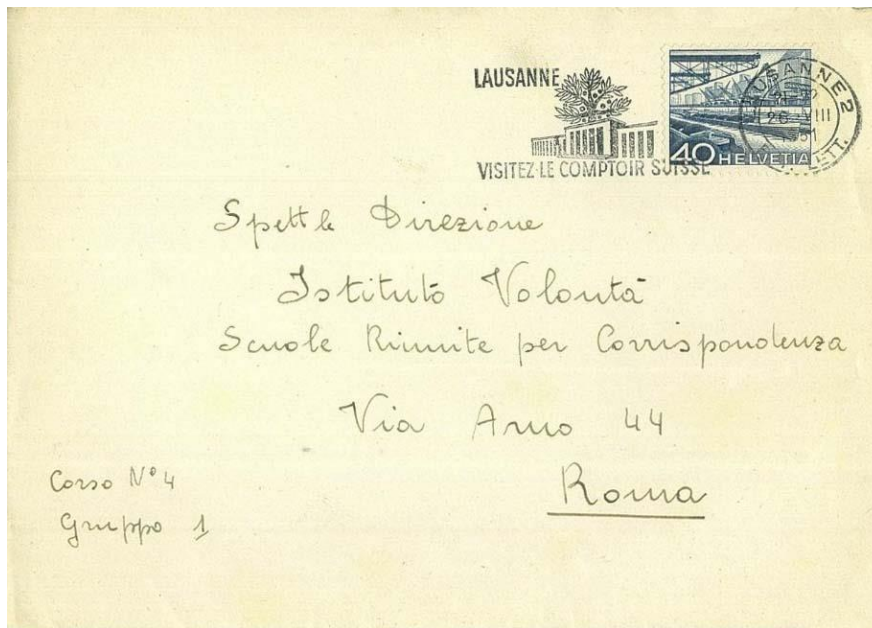 LAUSANNE
VISITEZ LE COMPTOIR SUISSE
LAUSANNE 2
26 VIII
40 HELVETIA
Spettle Direzione
Istituto Volontà
Scuole Riunite per Corrispondenza
Via Arno 44
Roma
Corso N° 4
Gruppo 1